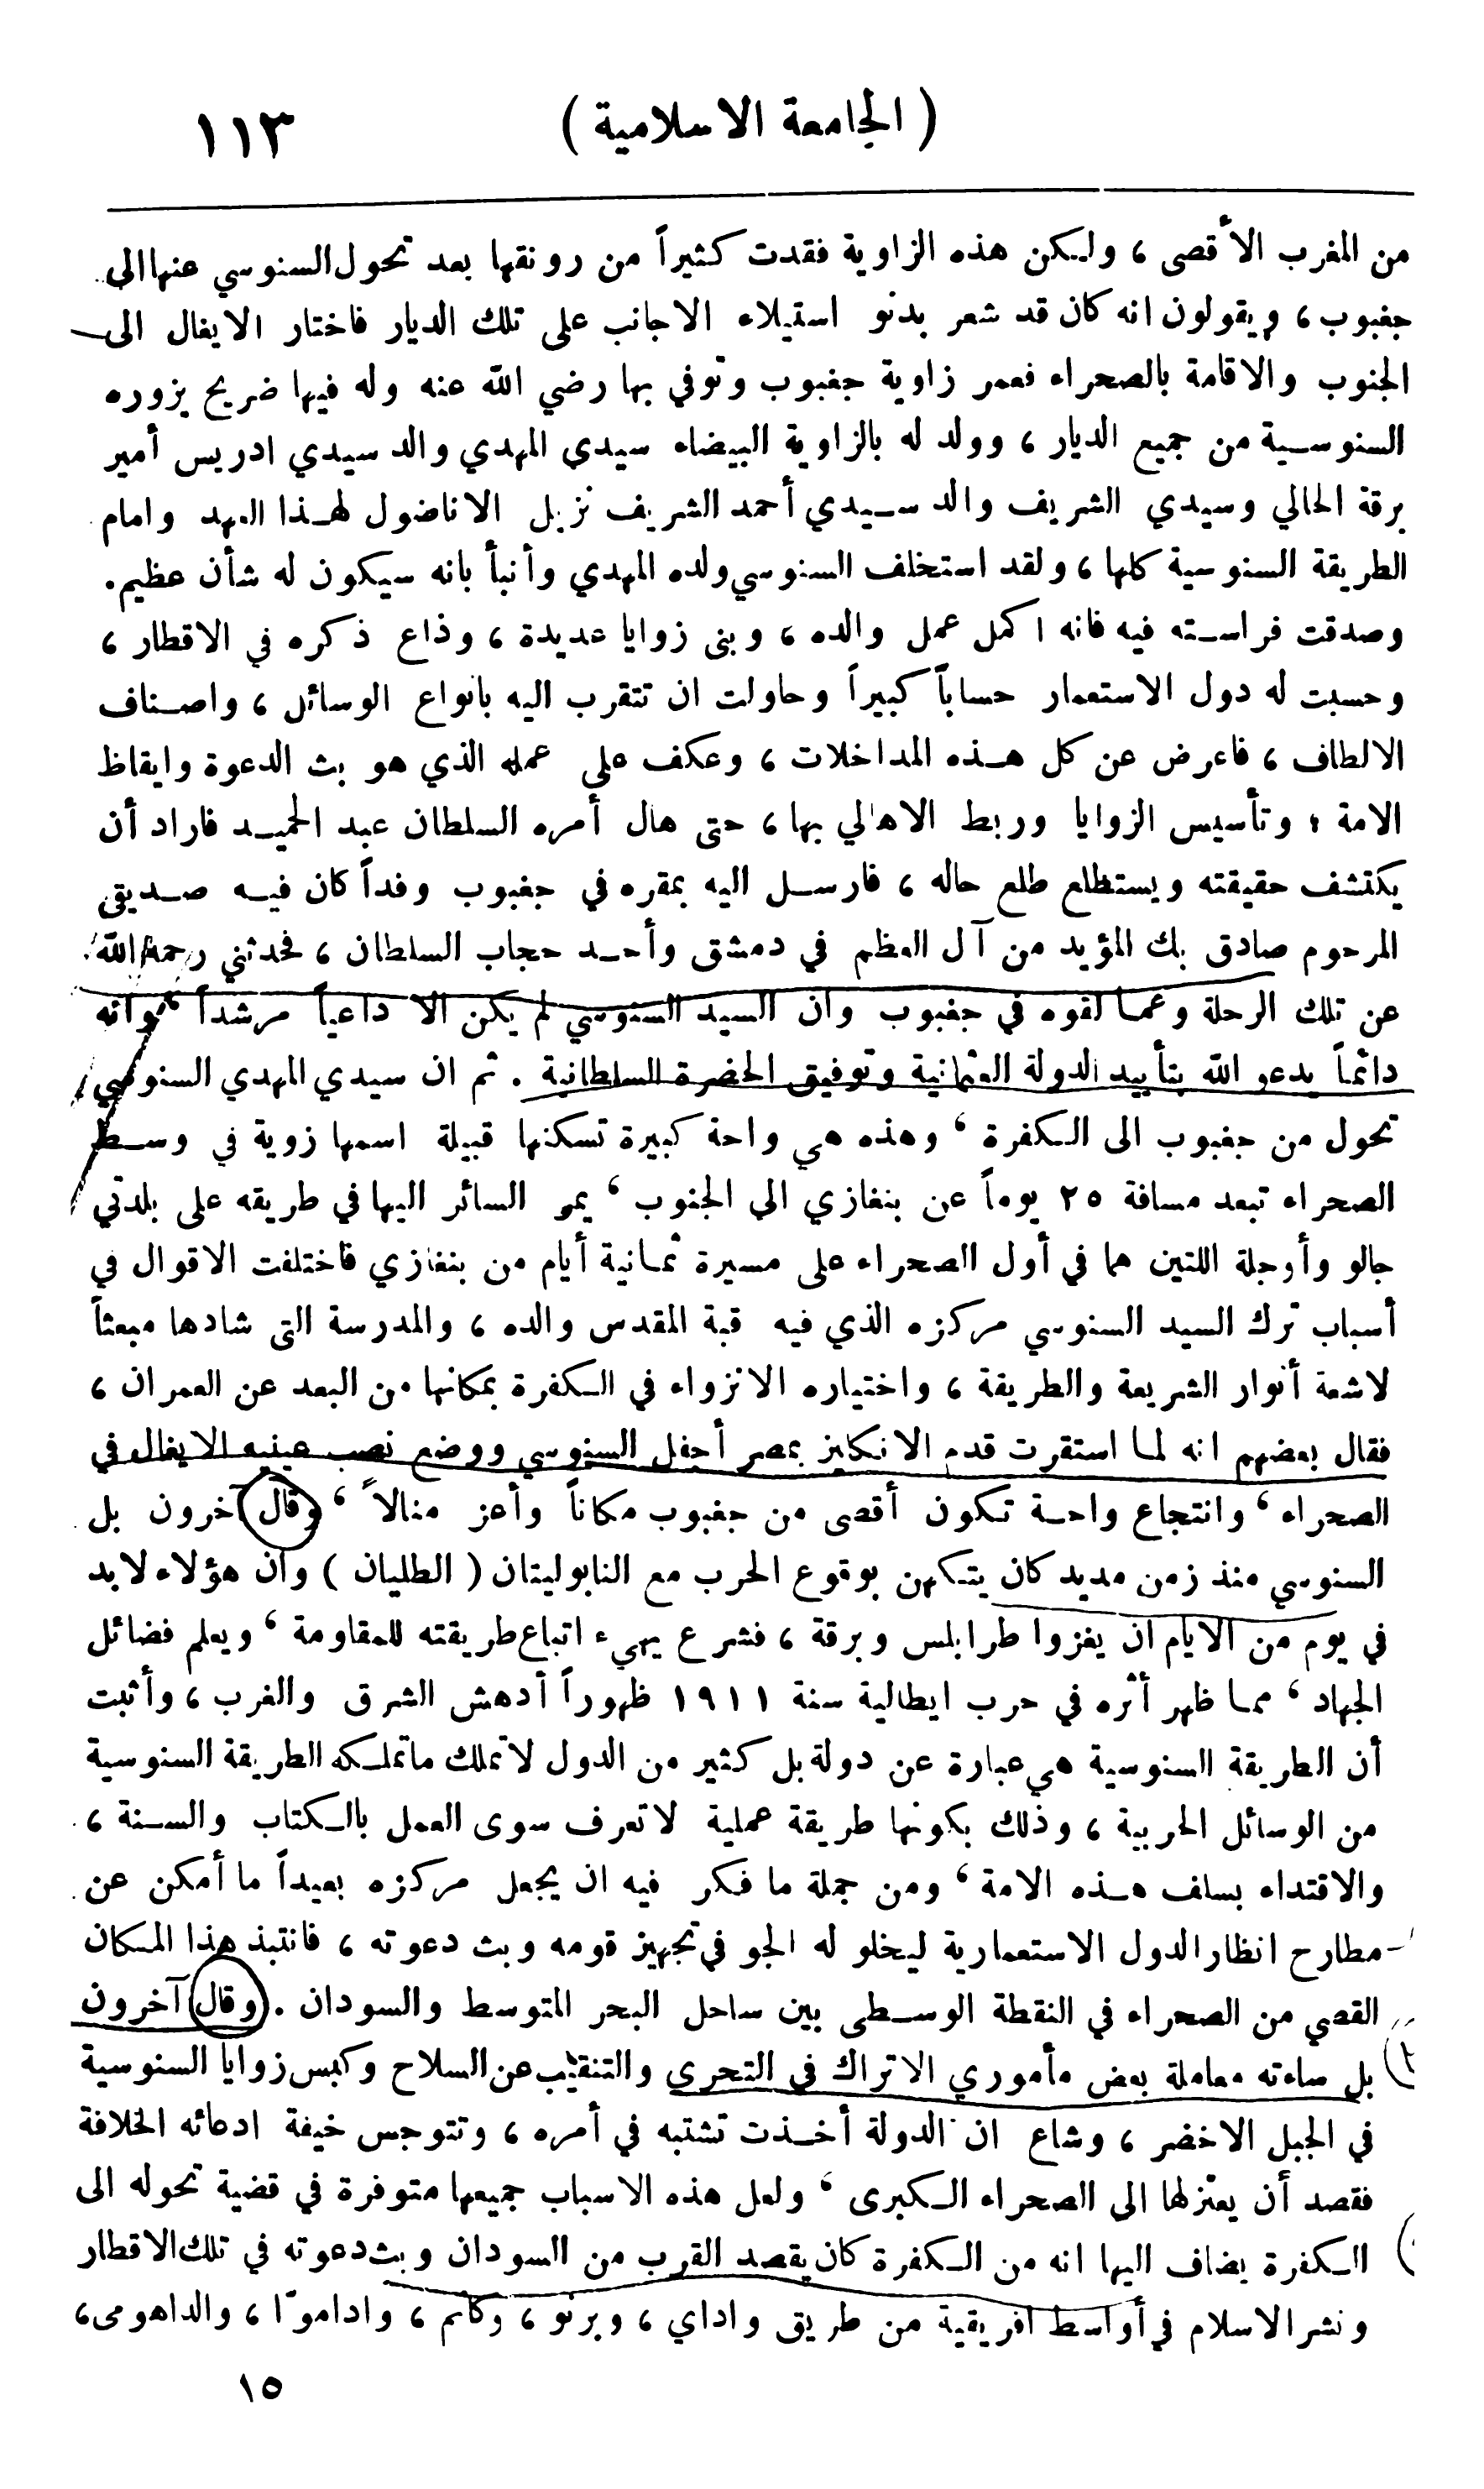 ( الجامعة الاسلامية ) ١١٣
من المغرب الأقصى ، ولكن هذه الزاوية فقدت كثيراً من رونقها بعد تحول السنوسي عنها الى
جغبوب ، ويقولون انه كان قد شعر بدنو استيلاء الاجانب على تلك الديار فاختار الايغال الى
الجنوب والاقامة بالصحراء فعمر زاوية جغبوب وتوفي بها رضي الله عنه وله فيها ضريح يزوره
السنوسية من جميع الديار ، وولد له بالزاوية البيضاء سيدي المهدي والد سيدي ادريس أمير
برقة الحالي وسيدي الشريف والد سيدي أحمد الشريف نزيل الاناضول لهذا العهد وامام
الطريقة السنوسية كلها ، ولقد استخلف السنوسي ولده المهدي وأنبأ بانه سيكون له شأن عظيم .
وصدقت فراسته فيه فانه اكمل عمل والده ، وبنى زوايا عديدة ، وذاع ذكره في الاقطار ،
وحسبت له دول الاستعمار حساباً كبيراً وحاولت ان تتقرب اليه بانواع الوسائل ، واصناف
الالطاف ، فاعرض عن كل هذه المداخلات ، وعكف على عمله الذي هو بث الدعوة وايقاظ
الامة ؛ وتأسيس الزوايا وربط الاهالي بها ، حتى هال أمره السلطان عبد الحميد فاراد أن
يكتشف حقيقته ويستطلع طلع حاله ، فارسل اليه بمقره في جغبوب وفداً كان فيه صديقي
المرحوم صادق بك المؤيد من آل العظم في دمشق وأحد حجاب السلطان ، فحدثني رحمه الله
عن تلك الرحلة وعما لقوه في جغبوب وان السيد السنوسي لم يكن الا داعياً مرشداً ، وانه
دائماً يدعو الله بتأييد الدولة العثمانية وتوفيق الحضرة السلطانية . ثم ان سيدي المهدي السنوسي ،
تحول من جغبوب الى الكفرة ، وهذه هي واحة كبيرة تسكنها قبيلة اسمها زوية في وسط
الصحراء تبعد مسافة ٢٥ يوماً عن بنغازي الى الجنوب ، يمر السائر اليها في طريقه على بلدتي
جالو وأوجلة اللتين هما في أول الصحراء على مسيرة ثمانية أيام من بنغازي فاختلفت الاقوال في
أسباب ترك السيد السنوسي مركزه الذي فيه قبة المقدس والده ، والمدرسة التى شادها مبعثاً
لاشعة أنوار الشريعة والطريقة ، واختياره الانزواء في الكفرة بمكانها من البعد عن العمران ،
فقال بعضهم انه لما استقرت قدم الانكليز بمصر أجفل السنوسي ووضع نصب عينيه الايغال في
الصحراء ، وانتجاع واحة تكون أقصى من جغبوب مكاناً وأعز منالاً ، وقال آخرون بل
السنوسي منذ زمن مديد كان يتكهن بوقوع الحرب مع النابوليتان ( الطليان ) وان هؤلاء لابد
في يوم من الايام ان يغزوا طرابلس وبرقة ، فشرع يهيء اتباع طريقته للمقاومة ، ويعلم فضائل
الجهاد ، مما ظهر أثره في حرب ايطالية سنة ١٩١١ ظهوراً أدهش الشرق والغرب ، وأثبت
أن الطريقة السنوسية هي عبارة عن دولة بل كثير من الدول لا تملك ما تملكه الطريقة السنوسية
من الوسائل الحربية ، وذلك بكونها طريقة عملية لا تعرف سوى العمل بالكتاب والسنة ،
والاقتداء بسلف هذه الامة ، ومن جملة ما فكر فيه ان يجعل مركزه بعيداً ما أمكن عن
مطارح انظار الدول الاستعمارية ليخلو له الجو في تجهيز قومه وبث دعوته ، فانتبذ هذا المكان
القصي من الصحراء في النقطة الوسطى بين ساحل البحر المتوسط والسودان . وقال آخرون
بل ساءته معاملة بعض مأموري الاتراك في التحرى والتنقيب عن السلاح وكبس زوايا السنوسية
في الجبل الاخضر ، وشاع ان الدولة أخذت تشتبه في أمره ، وتتوجس خيفة ادعائه الخلافة
فقصد أن يعتزلها الى الصحراء الكبرى ، ولعل هذه الاسباب جميعها متوفرة في قضية تحوله الى
الكفرة يضاف اليها انه من الكفرة كان يقصد القرب من السودان وبث دعوته في تلك الاقطار
ونشر الاسلام في أواسط افريقية من طريق واداي ، وبرنو ، وكانم ، واداموا ، والداهومى ،
١٥